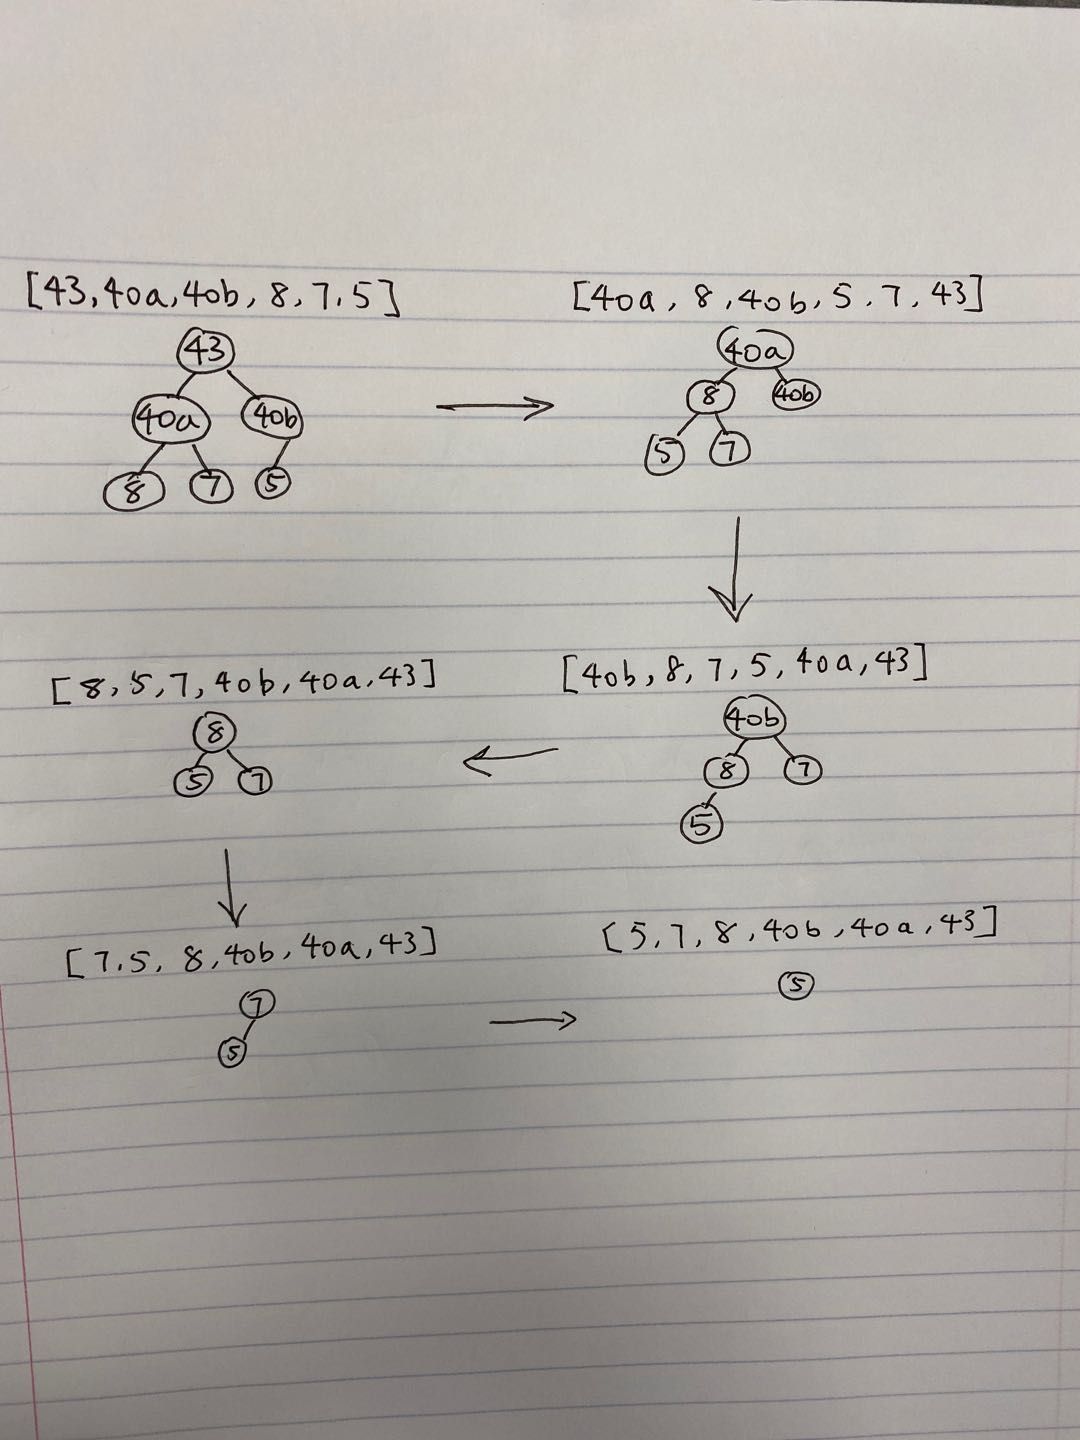 [43, 40a, 40b, 8, 7, 5]
43
40a 40b
8 7 5
[40a, 8, 40b, 5, 7, 43]
40a
8 40b
5 7
[40b, 8, 7, 5, 40a, 43]
40b
8 7
5
[8, 5, 7, 40b, 40a, 43]
8
5 7
[7, 5, 8, 40b, 40a, 43]
7
5
[5, 7, 8, 40b, 40a, 43]
5